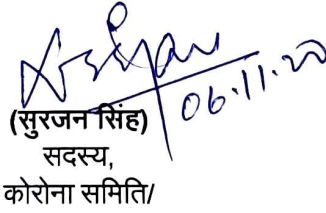 06.11.20
(सुरजन सिंह)
सदस्य,
कोरोना समिति/